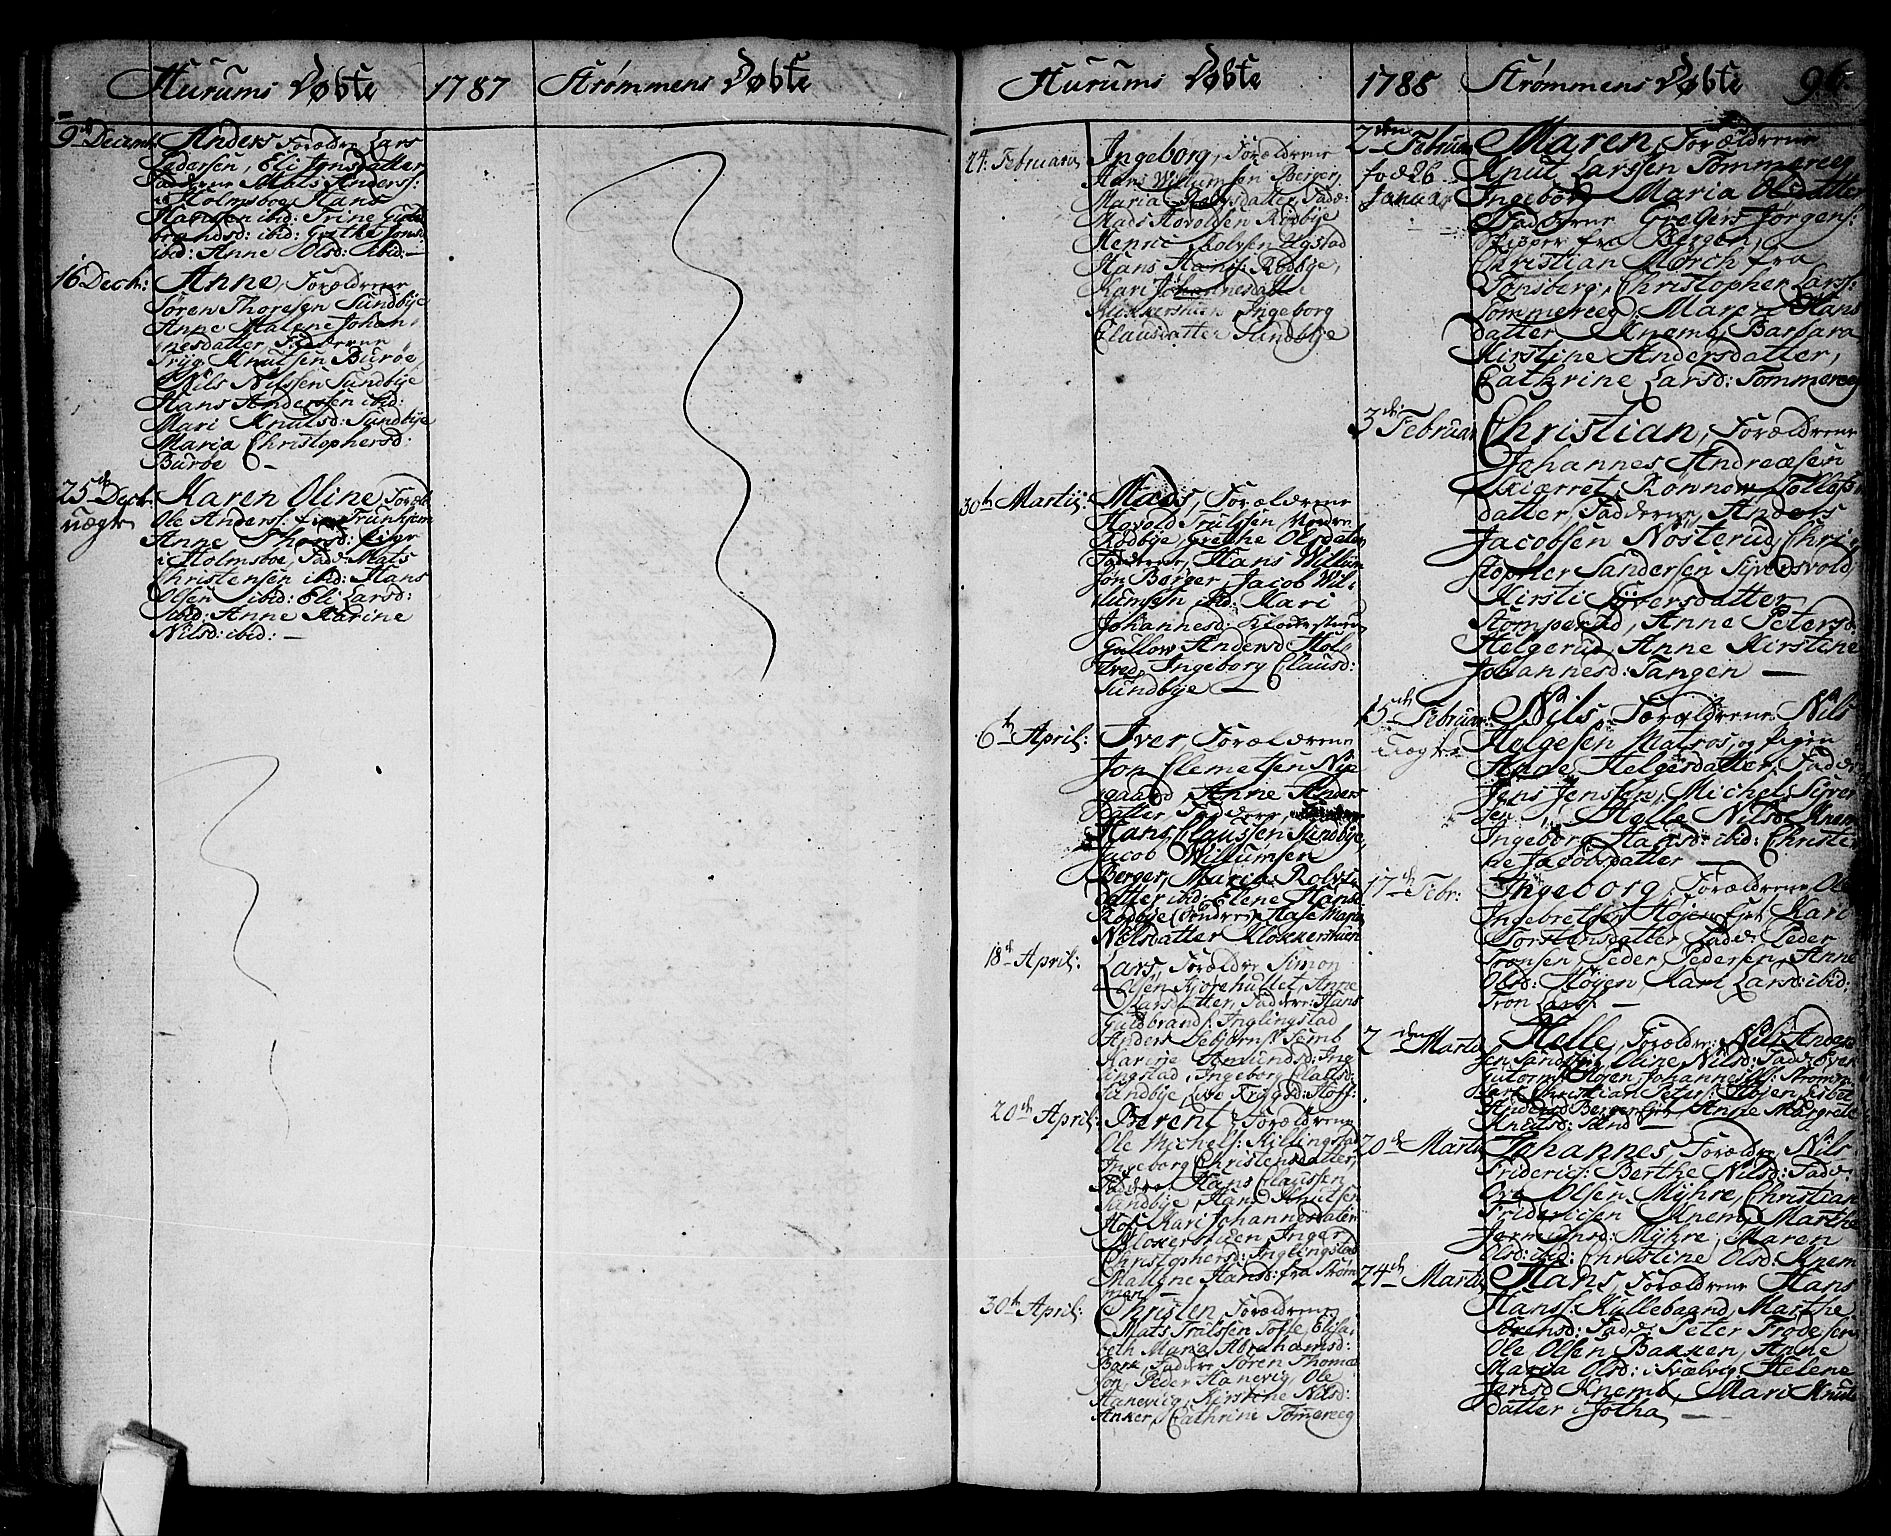 Hurums Døbte 1787 Strømmens Døbte
9de Decemb: Anders Forældre Lars
Pedersen, Eli Jonsdatter,
Faddere Mats Anderss:
Holmsboe, Hans
Hansen ibid: Trine Guld
brandsd: ibid: Grethe Jonsd:
ibid: Anne Olsd: ibid: —
16 Decb: Anne, Forældrene
Søren Thoresen Sundbÿe
Anne Malene Johan
nesdatter Fadderne
Tryg Knutsen Burøe,
Nils Nilssen Sundbÿe
Hans Andersen ibid:
Mari Knutsd: Sundbÿe
Maria Christophersd:
Burøe —
25de Decb: Karen Oline, Foræld
uægte Ole Anderss: fra
Anne Thorsd:
i Holmsboe, Fad: Mats
Christensen ibid: Hans
Olsen ibid: Eli Larsd:
ibid: Anne Karine
Nilsd: ibid: —
Hurums Døbte 1788 Strømmens Døbte 96.
24: Februarii Ingeborg, Forældrene
Hans Willumsen Berger,
Maria Rolvsdatter, Fadd:
Mads Hovoldsen Rødbÿe
Henric Rolvsen Ugstad
Hans Hanss: Rødbÿe,
Kari Johannesdatter
Klokkerstuen Ingeborg
Clausdatter Sundbÿe
30th Martii: Mads, Forældrene
Hovold Trulssen Nordre
Rødbÿe, Grethe Olsdatter
Fadderne, Hans Willum
søn Berger, Jacob Wil
lumsen ibid: Kari
Johannesd: Klokkerstuen
Gullow Andersd Hol
tved, Ingeborg Clausd:
Sundbÿe —
6th April: Iver, Forældrene
Jon Clemetsen Nÿe
gaard, Anne Anders
datter Faddere,
Hans Claussen Sundbÿe,
Jacob Willumsen
Berger, Maria Rolvs
datter ibid: Elene Hansd:
Rødbÿe Maria
Nilsdatter Klokkerstuen
18de April: Lars, Forældre Simon
Olsen Anne
Larsdatter, Faddere: Hans
Guldbrands: Inglingstad
Anders Sebjørns: Semb
Karine Amundsd: Ing
lingstad, Ingeborg Clausd:
Sundbÿe, Trÿgsd: Hoff:
20de April: Berent, Forældrene
Ole Michels: Killingstad
Ingeborg Christensdatter,
Faddere, Hans Claussen
Sundbÿe, Hans Knutsen
Hof, Kari Johannesdatter
Klokkerstuen, Inger
Christophersd: Inglingstad
Mallene Hansd: fra Strøm
men —
30th April: Christen, Forældrene
Mats Trulssen Tofte, Elisa
beth Maria Abrahamsd:
Faddere, Søren Thomæ
søn, Peder Hanevig, Ole
Hanevig, Kirstene Nilsd:
Anker, Cathrine Tømmereeg
2den Februar Maren, Forældrene
fød 26 Knut Larssen Tømmereeg
Januar Ingeborg Maria Olsdatter
Fadderne Gregers Jørgens:
Skipper fra Bergen,
Christian Mørch fra
Tønsberg, Christopher Larss:
Tømmereeg, Maren Hans
datter Knemb, Barbara
Kirstine Andersdatter,
Cathrine Larsd: Tømmereeg
3de Februar Christian, Forældrene
Johannes Andreæsen
Skiærret, Rønnow Tollofs
datter, Fadderne, Anders
Jacobsen Nøsterud, Chri
stopher Sandersen Sÿverdsvold
Kirsti Sÿversdatter
Stomperud, Anne Petersd:
Helgerud, Anne Kirstine
Johannesd: Tangen —
15de Februar: Nils, Forældrene Nils
Uægte Helgesen Matros, og Pigen
Anne Helgesdatter, Fadd:
Jens Jenssen, Michel Sÿver
sen, Helle Nilsd: Knem
Ingeborg Hansd: ibid: Christen
ne Jacobsdatter —
17de Febr: Ingeborg, Forældrene, Ole
Ingebretsen Høÿen Kari
Torstensdatter, Fadd: Peder
Tronsen, Peder Pedersen, Anne
Olsd: Høÿen, Kari Larsd: ibid:
Tron Larss: —
2den Martii Helle, Forældre: Nils Anders
sen Oline Nilsd: Fadd:
Gutorms: Høÿen, Johannes
Christian Peters: Høÿen, Lisbet
Andersd Bergen Anne Margrete
Knutsd: —
20de Martii Johannes, Forældre, Nils
Friderics: Berthe Nilsd: Fadd:
Ove Olsen Mÿhre, Christian
Fridericsen Knem, Marthe
Mÿhre, Maren
Olsd: ibid: Christine Olsd: Knem
24de Martii Hans, Forældrene Hans
Hanss: Kullebaand, Marthe
Sørensd: Fadd: Peter Frodesen
Ole Olsen Bakken, Anne
Maria Olsd: i Svælvig, Helene
Jensd: Knemb, Mari Knuts
datter i Jotha —